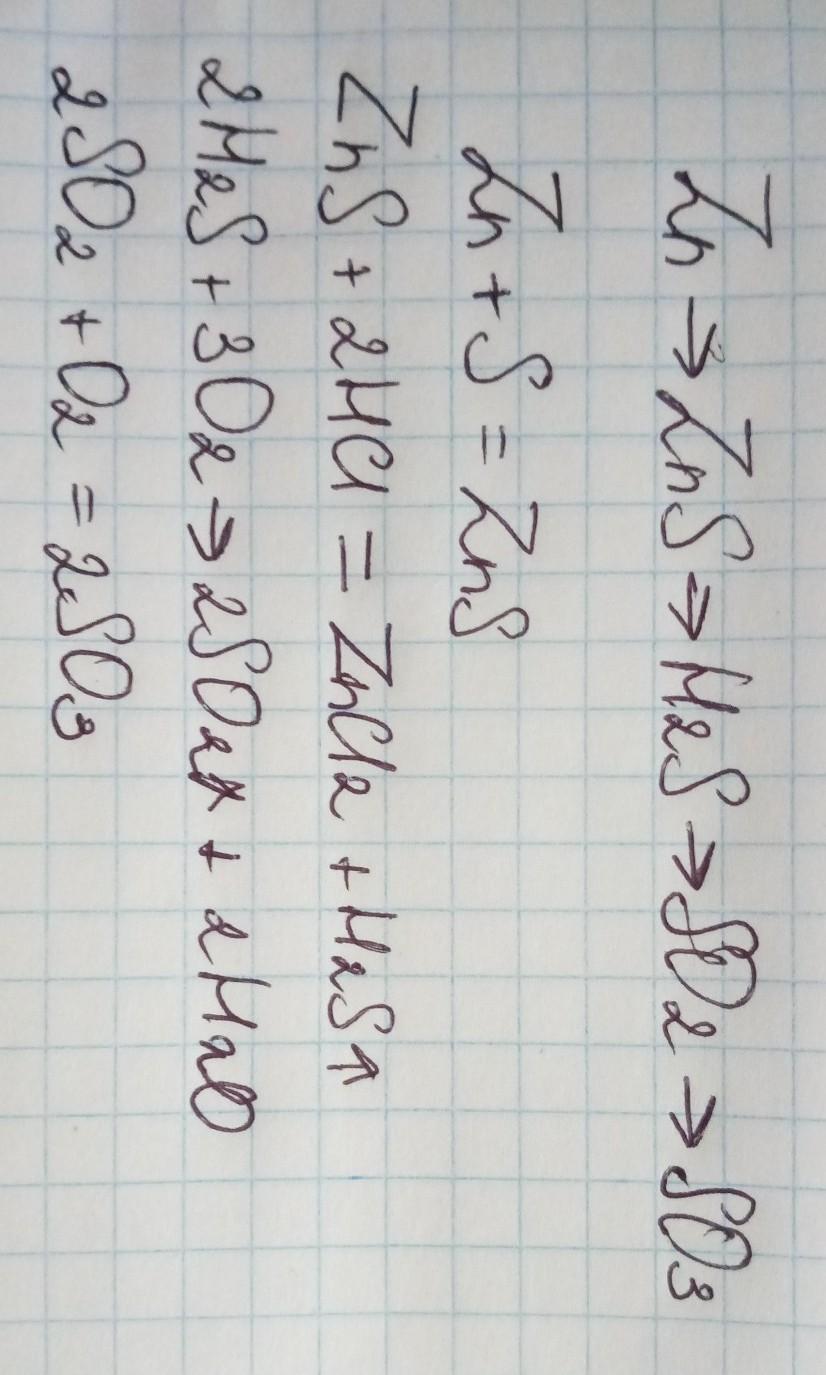 Zn → ZnS → H2S → SO2 → SO3
Zn + S = ZnS
ZnS + 2HCl = ZnCl2 + H2S ↑
2H2S + 3O2 → 2SO2 + 2H2O
2SO2 + O2 = 2SO3